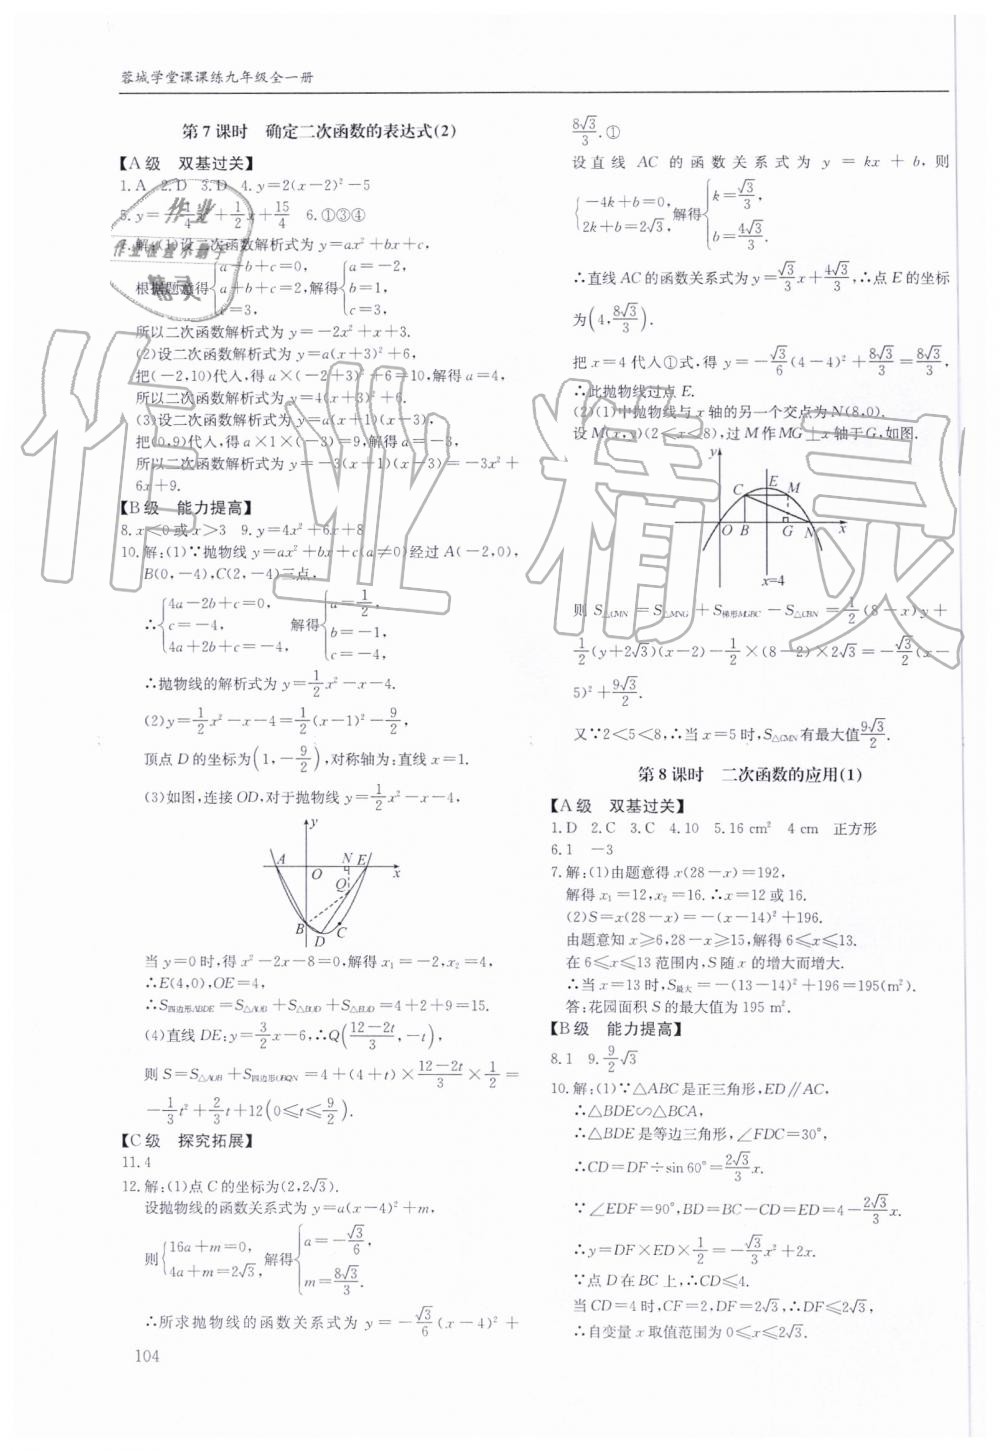 蓉城学堂课课练九年级全一册
第7课时 确定二次函数的表达式(2)
【A级 双基过关】
1.A 2.D 3.D 4.y=2(x-2)²-5
5.y=-1/4x²+1/2x+15/4 6.①③④
7.解:(1)设二次函数解析式为y=ax²+bx+c,
根据题意得{a-b+c=0, a+b+c=2, c=3, 解得{a=-2, b=1, c=3,
所以二次函数解析式为y=-2x²+x+3.
(2)设二次函数解析式为y=a(x+3)²+6,
把(-2,10)代人,得a×(-2+3)²+6=10,解得a=4,
所以二次函数解析式为y=4(x+3)²+6.
(3)设二次函数解析式为y=a(x+1)(x-3),
把(0,9)代人,得a×1×(-3)=9,解得a=-3,
所以二次函数解析式为y=-3(x+1)(x-3)=-3x²+
6x+9.
【B级 能力提高】
8.x<0或x>3 9.y=4x²+6x+8
10.解:(1)∵抛物线y=ax²+bx+c(a≠0)经过A(-2,0),
B(0,-4),C(2,-4)三点,
∴{4a-2b+c=0, c=-4, 4a+2b+c=-4, 解得{a=1/2, b=-1, c=-4.
∴抛物线的解析式为y=1/2x²-x-4.
(2)y=1/2x²-x-4=1/2(x-1)²-9/2,
顶点D的坐标为(1,-9/2),对称轴为:直线x=1.
(3)如图,连接OD,对于抛物线y=1/2x²-x-4,
y
A O N E x
Q
B D C
当y=0时,得x²-2x-8=0,解得x₁=-2,x₂=4,
∴E(4,0),OE=4,
∴S四边形ABDE=S△AOB+S△BOD+S△EOD=4+2+9=15.
(4)直线DE:y=3/2x-6,∴Q(12-2t/3,-t),
则S=S△AOB+S四边形OBQN=4+(4+t)×12-2t/3×1/2=
-1/3t²+2/3t+12(0≤t≤9/2).
【C级 探究拓展】
11.4
12.解:(1)点C的坐标为(2,2√3).
设抛物线的函数关系式为y=a(x-4)²+m,
则{16a+m=0, 4a+m=2√3, 解得{a=-√3/6, m=8√3/3.
∴所求抛物线的函数关系式为y=-√3/6(x-4)²+
104
8√3/3.①
设直线AC的函数关系式为y=kx+b,则
{-4k+b=0, 2k+b=2√3, 解得{k=√3/3, b=4√3/3.
∴直线AC的函数关系式为y=√3/3x+4√3/3,∴点E的坐标
为(4,8√3/3).
把x=4代人①式,得y=-√3/6(4-4)²+8√3/3=8√3/3,
∴此抛物线过点E.
(2)(1)中抛物线与x轴的另一个交点为N(8,0).
设M(x,y)(2<x<8),过M作MG⊥x轴于G,如图.
y
C E M
O B G N x
x=4
则S△CMN=S△MNG+S梯形MGBC-S△CBN=1/2(8-x)y+
1/2(y+2√3)(x-2)-1/2×(8-2)×2√3=-√3/2(x-
5)²+9√3/2.
又∵2<5<8,∴当x=5时,S△CMN有最大值9√3/2.
第8课时 二次函数的应用(1)
【A级 双基过关】
1.D 2.C 3.C 4.10 5.16 cm² 4 cm 正方形
6.1 -3
7.解:(1)由题意得x(28-x)=192,
解得x₁=12,x₂=16.∴x=12或16.
(2)S=x(28-x)=-(x-14)²+196.
由题意知x≥6,28-x≥15,解得6≤x≤13.
在6≤x≤13范围内,S随x的增大而增大.
∴当x=13时,S最大=-(13-14)²+196=195(m²).
答:花园面积S的最大值为195 m².
【B级 能力提高】
8.1 9.9/2√3
10.解:(1)∵△ABC是正三角形,ED∥AC,
∴△BDE∽△BCA,
∴△BDE是等边三角形,∠FDC=30°,
∴CD=DF÷sin 60°=2√3/3x.
∵∠EDF=90°,BD=BC-CD=ED=4-2√3/3x.
∴y=DF×ED×1/2=-√3/3x²+2x.
∵点D在BC上,∴CD≤4.
当CD=4时,CF=2,DF=2√3,∴DF≤2√3,
∴自变量x取值范围为0≤x≤2√3.
作业精灵
作业
作业检查小助手
精灵